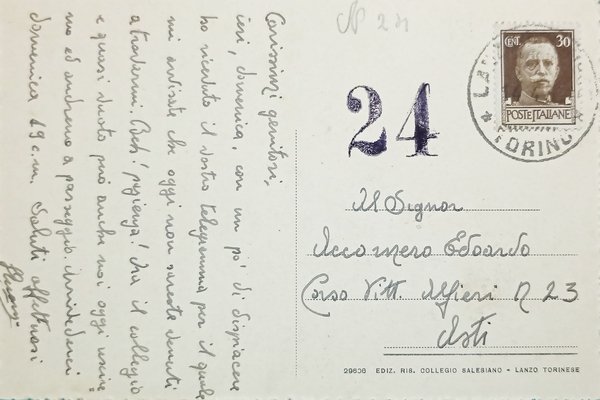 Carissimi genitori,
ieri, domenica, con un po' di dispiacere
ho ricevuto il vostro telegramma per il quale
mi avvisate che oggi non sareste venuti
a trovarmi. Beh! pazienza! Ma il collegio
e quasi vuoto può anche noi oggi uscire
mo ed andremo a passeggio. Arrivederci
domenica 19 c.m. Saluti affettuosi
N 24
24
CENT. 30
POSTE ITALIANE
LAN
TORINO
Al Signor
Accornero Edoardo
Corso Vitt. Alfieri N 23
Asti
29608 EDIZ. RIS. COLLEGIO SALESIANO - LANZO TORINESE